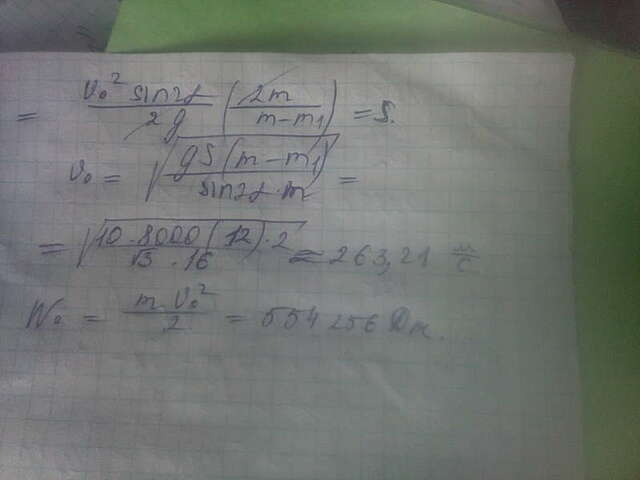 = v₀² sin2α / 2g (2m / m-m₁) = S.
v₀ = √(gS(m-m₁) / sin2α·m) =
= √(10·8000(12)·2 / √3·16) = 263,21 м/с
W₀ = m v₀² / 2 = 554 256 Дж.